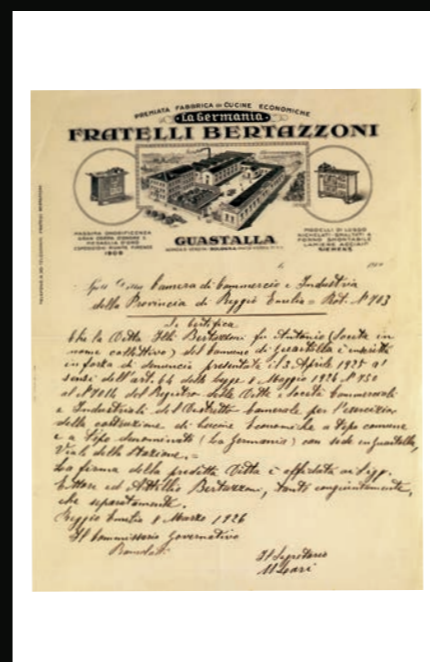 PREMIATA FABBRICA DI CUCINE ECONOMICHE
"La Germania"
FRATELLI BERTAZZONI
MASSIMA ONORIFICENZA
GRAN CROCE D'ONORE E
MEDAGLIA D'ORO
FIRENZE
1909
GUASTALLA
MODELLI DI LUSSO
NICHELATI SMALTATI A
FORNO SMONTABILE
LAMIERE ACCIAIO
SIEMENS
Camera di Commercio e Industria
della Provincia di Reggio Emilia = Prot. N° 913
Si Certifica
che la Ditta Flli Bertazzoni fu Antonio (Società in
nome collettivo) del Comune di Guastalla è inscritta
in forza di denuncia presentata il 3 Aprile 1925 a'
sensi dell'art. 64 della legge 8 Maggio 1924 N° 750
al N° 7014 del Registro delle Ditte e Società Commerciali
e Industriali del Distretto Camerale per l'esercizio
della costruzione di Cucine Economiche a tipo comune
e a tipo denominato (La Germania) con sede in Guastalla,
Viale della Stazione. =
La firma della predetta Ditta è affidata ai Sigg.
Ettore ed Attillio Bertazzoni, tanto congiuntamente,
che separatamente.
Reggio Emilia 8 Marzo 1926
Il Commissario Governativo
Il Segretario